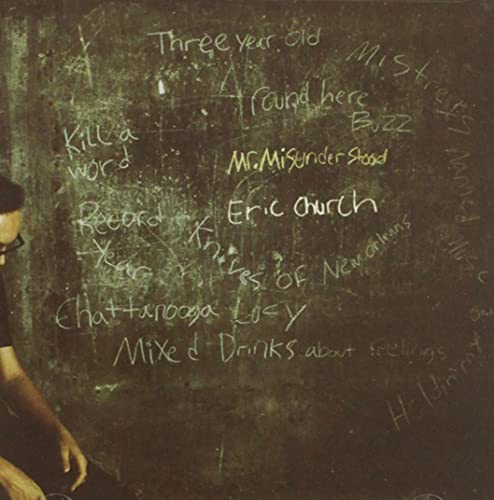 Three year old
Mistress Named Music
round here
Buzz
Kill a
word
Mr. Misunderstood
Eric Church
Record
Year
Knives of New Orleans
Chattanooga Lucy
Mixed Drinks about feelings
Holdin' my